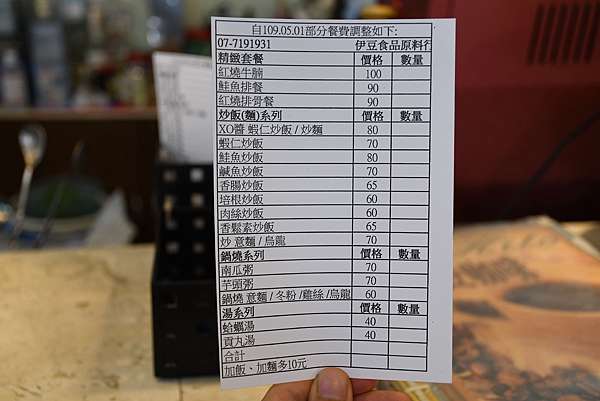 自109.05.01部分餐費調整如下:
07-7191931 伊豆食品原料行
精緻套餐 價格 數量
紅燒牛腩 100
鮭魚排餐 90
紅燒排骨餐 90
炒飯(麵)系列 價格 數量
XO醬 蝦仁炒飯 / 炒麵 80
蝦仁炒飯 70
鮭魚炒飯 80
鹹魚炒飯 70
香腸炒飯 65
培根炒飯 60
肉絲炒飯 60
香鬆素炒飯 65
炒 意麵 / 烏龍 70
鍋燒系列 價格 數量
南瓜粥 70
芋頭粥 70
鍋燒 意麵 / 冬粉 /雞絲 /烏龍 60
湯系列 價格 數量
蛤蠣湯 40
貢丸湯 40
合計
加飯、加麵多10元